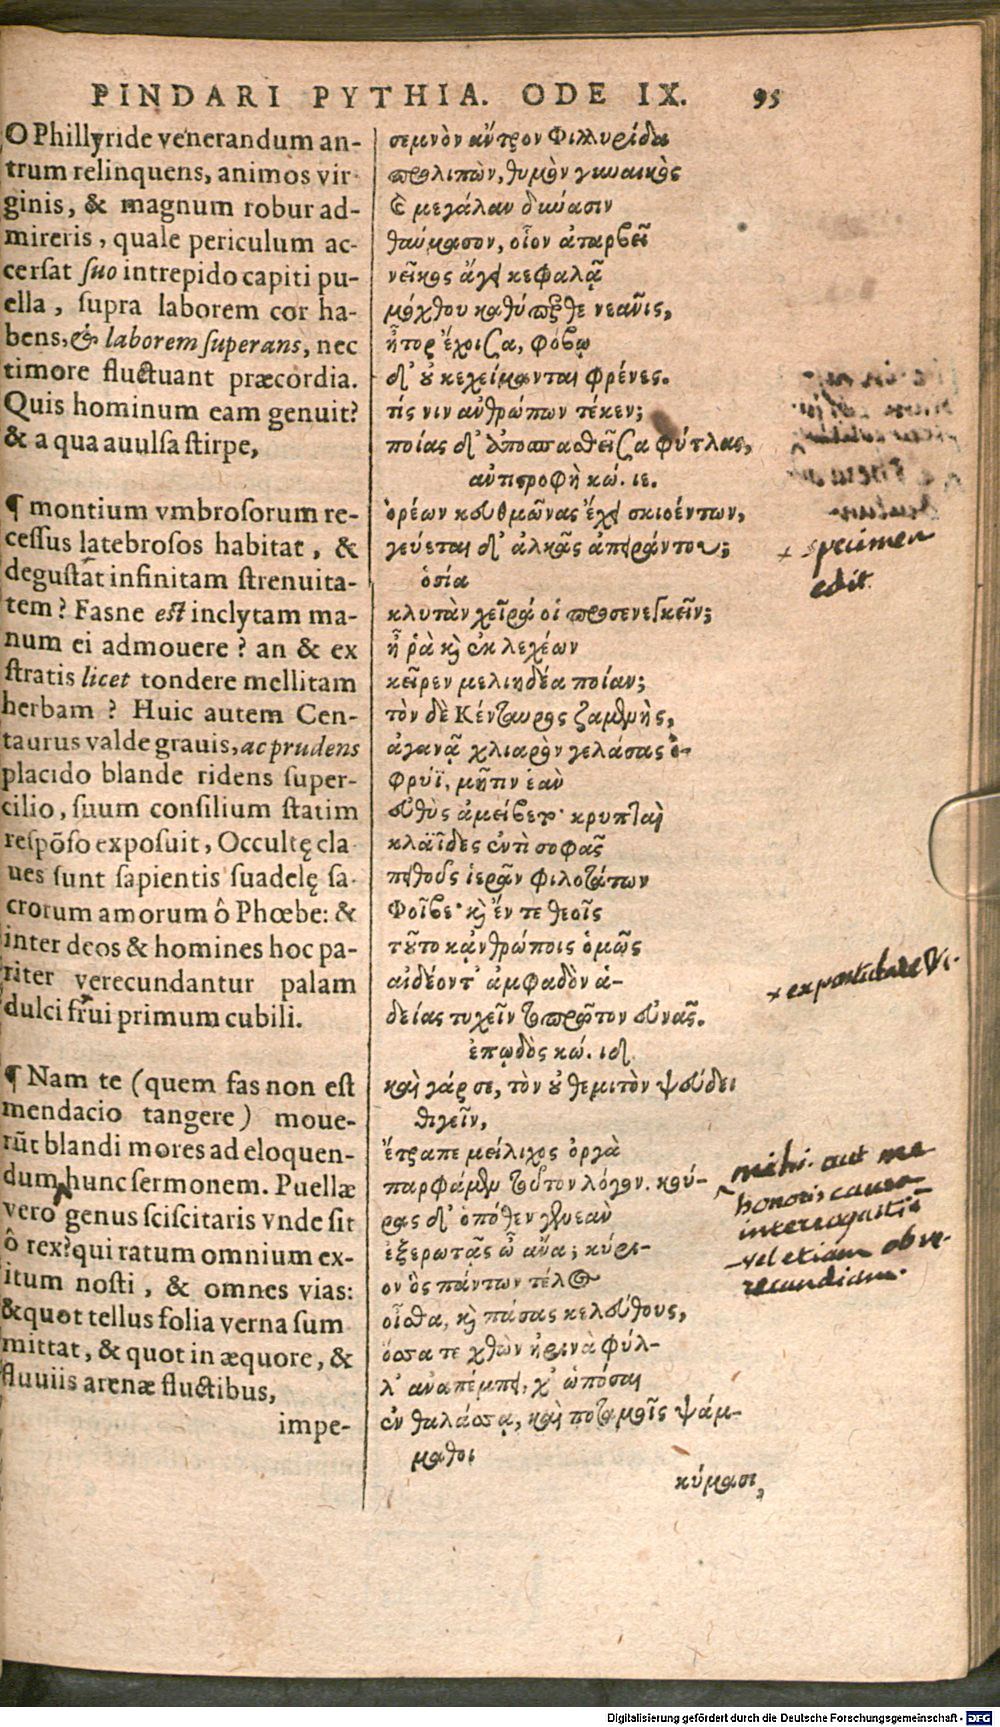 PINDARI PYTHIA. ODE IX. 95
O Phillyride venerandum an-
trum relinquens, animos vir
ginis, & magnum robur ad-
mireris, quale periculum ac-
cersat suo intrepido capiti pu-
ella, supra laborem cor ha-
bens, & laborem superans, nec
timore fluctuant præcordia.
Quis hominum eam genuit?
& a qua auulsa stirpe,
¶ montium vmbrosorum re-
cessus latebrosos habitat, &
degustat infinitam strenuita-
tem? Fasne est inclytam ma-
num ei admouere? an & ex
stratis licet tondere mellitam
herbam? Huic autem Cen-
taurus valde grauis, ac prudens
placido blande ridens super-
cilio, suum consilium statim
respōso exposuit, Occultę cla
ues sunt sapientis suadelę sa-
crorum amorum ô Phœbe: &
inter deos & homines hoc pa-
riter verecundantur palam
dulci frui primum cubili.
¶ Nam te (quem fas non est
mendacio tangere) moue-
rūt blandi mores ad eloquen-
dum hunc sermonem. Puellæ
vero genus sciscitaris vnde sit
ô rex? qui ratum omnium ex-
itum nosti, & omnes vias:
& quot tellus folia verna sum
mittat, & quot in æquore, &
fluuiis arenæ fluctibus,
impe-
σεμνὸν ἄντρον Φιλλυρίδα
προλιπὼν, θυμὸν γυναικὸς
καὶ μεγάλαν δύνασιν
θαύμασον, οἷον ἀταρβεῖ
νεῖκος ἄγει κεφαλᾷ
μόχθου καθύπερθε νεᾶνις,
ἦτορ ἔχοισα, φόβῳ
δ' οὐ κεχείμανται φρένες.
τίς νιν ἀνθρώπων τέκεν;
ποίας δ' ἀποσπασθεῖσα φύτλας,
ἀντιστροφὴ κώ. ιε.
ὀρέων κευθμῶνας ἔχει σκιοέντων,
γεύεται δ' ἀλκᾶς ἀπειράντου;
ὁσία
κλυτὰν χεῖρά οἱ προσενεγκεῖν;
ἦ ῥὰ καὶ ἐκ λεχέων
κεῖρεν μελιηδέα ποίαν;
τὸν δὲ Κένταυρος ζαμενὴς,
ἀγανᾷ χλιαρὸν γελάσας ὀ-
φρύϊ, μῆτιν ἑὰν
εὐθὺς ἀμείβετο· κρυπταὶ
κλαῗδες ἐντὶ σοφᾶς
πειθοῦς ἱερᾶν φιλοτάτων
Φοῖβε· καὶ ἔν τε θεοῖς
τοῦτο κᾀνθρώποις ὁμῶς
αἰδέοντ' ἀμφαδὸν ἁ-
δείας τυχεῖν τοπρῶτον εὐνᾶς.
ἐπῳδὸς κώ. ιδ
καὶ γάρ σε, τὸν οὐ θεμιτὸν ψεύδει
θιγεῖν,
ἔτραπε μείλιχος ὀργὰ
παρφάμεν τοῦτον λόγον. κού-
ρας δ' ὁπόθεν γενεὰν
ἐξερωτᾷς ὦ ἄνα; κύρι-
ον ὃς πάντων τέλος
οἶσθα, καὶ πάσας κελεύθους,
ὅσσα τε χθὼν ἠρινὰ φύλ-
λ' ἀναπέμπει, χ' ὡπόσαι
ἐν θαλάσσᾳ, καὶ ποταμοῖς ψάμ-
μαθοι
κύμασι,
+ specimen
edit
mihi. aut me
honoris causa
vel etiam ob ve-
recundiam.
Digitalisierung gefördert durch die Deutsche Forschungsgemeinschaft - DFG